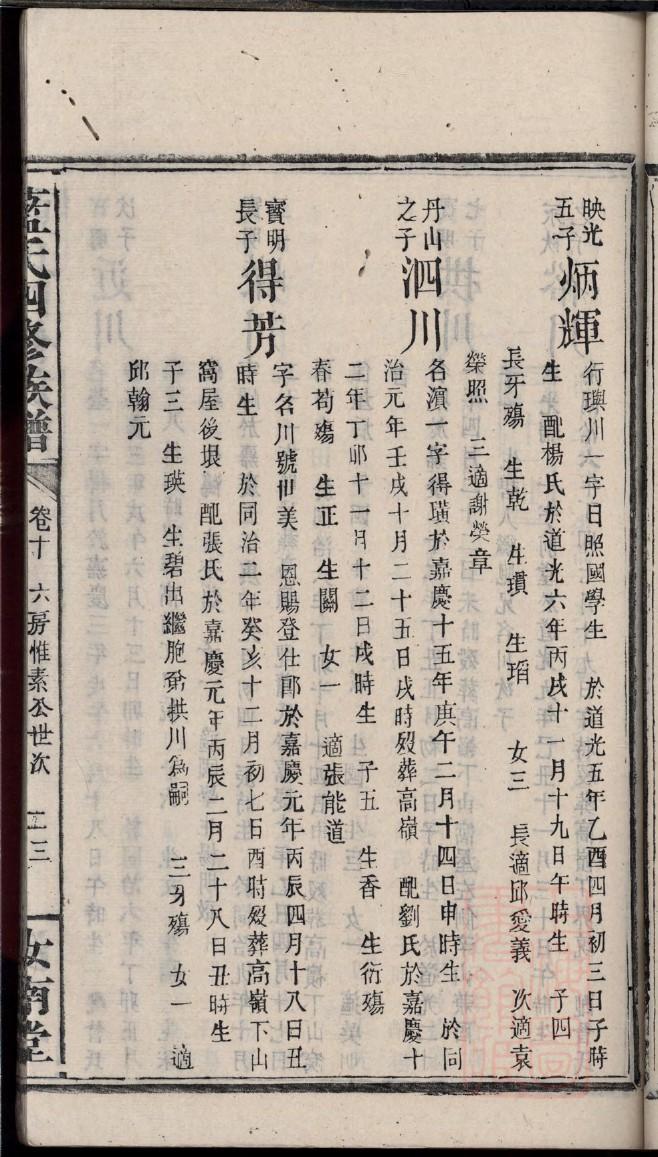 映光
五子
炳輝
行璵川一字日照國學生　於道光五年乙酉四月初三日子時
生　配楊氏於道光六年丙戌十一月十九日午時生　子四
長牙殤　生乾　生瓚　生瑁　女三　長適邱愛義　次適袁
榮照　三適謝榮章
丹山
之子
泗川
名濵一字得璜於嘉慶十五年庚午二月十四日申時生　於同
治元年壬戌十月二十五日戌時歿葬高嶺　配劉氏於嘉慶十
二年丁卯十一月十二日戌時生　子五　生香　生衍殤
春苟殤　生正　生關　女一　適張能道
寳明
長子
得芳
字名川號世美　恩賜登仕郎於嘉慶元年丙辰四月十八日丑
時生　於同治二年癸亥十二月初七日酉時歿葬高嶺下山
窩屋後垠　配張氏於嘉慶元年丙辰二月二十八日丑時生
子三　生瑛　生碧出繼胞弟拱川為嗣　三牙殤　女一　適
邱翰元
藍氏四修族譜
卷十　六房惟素公世次　二三
汝南堂